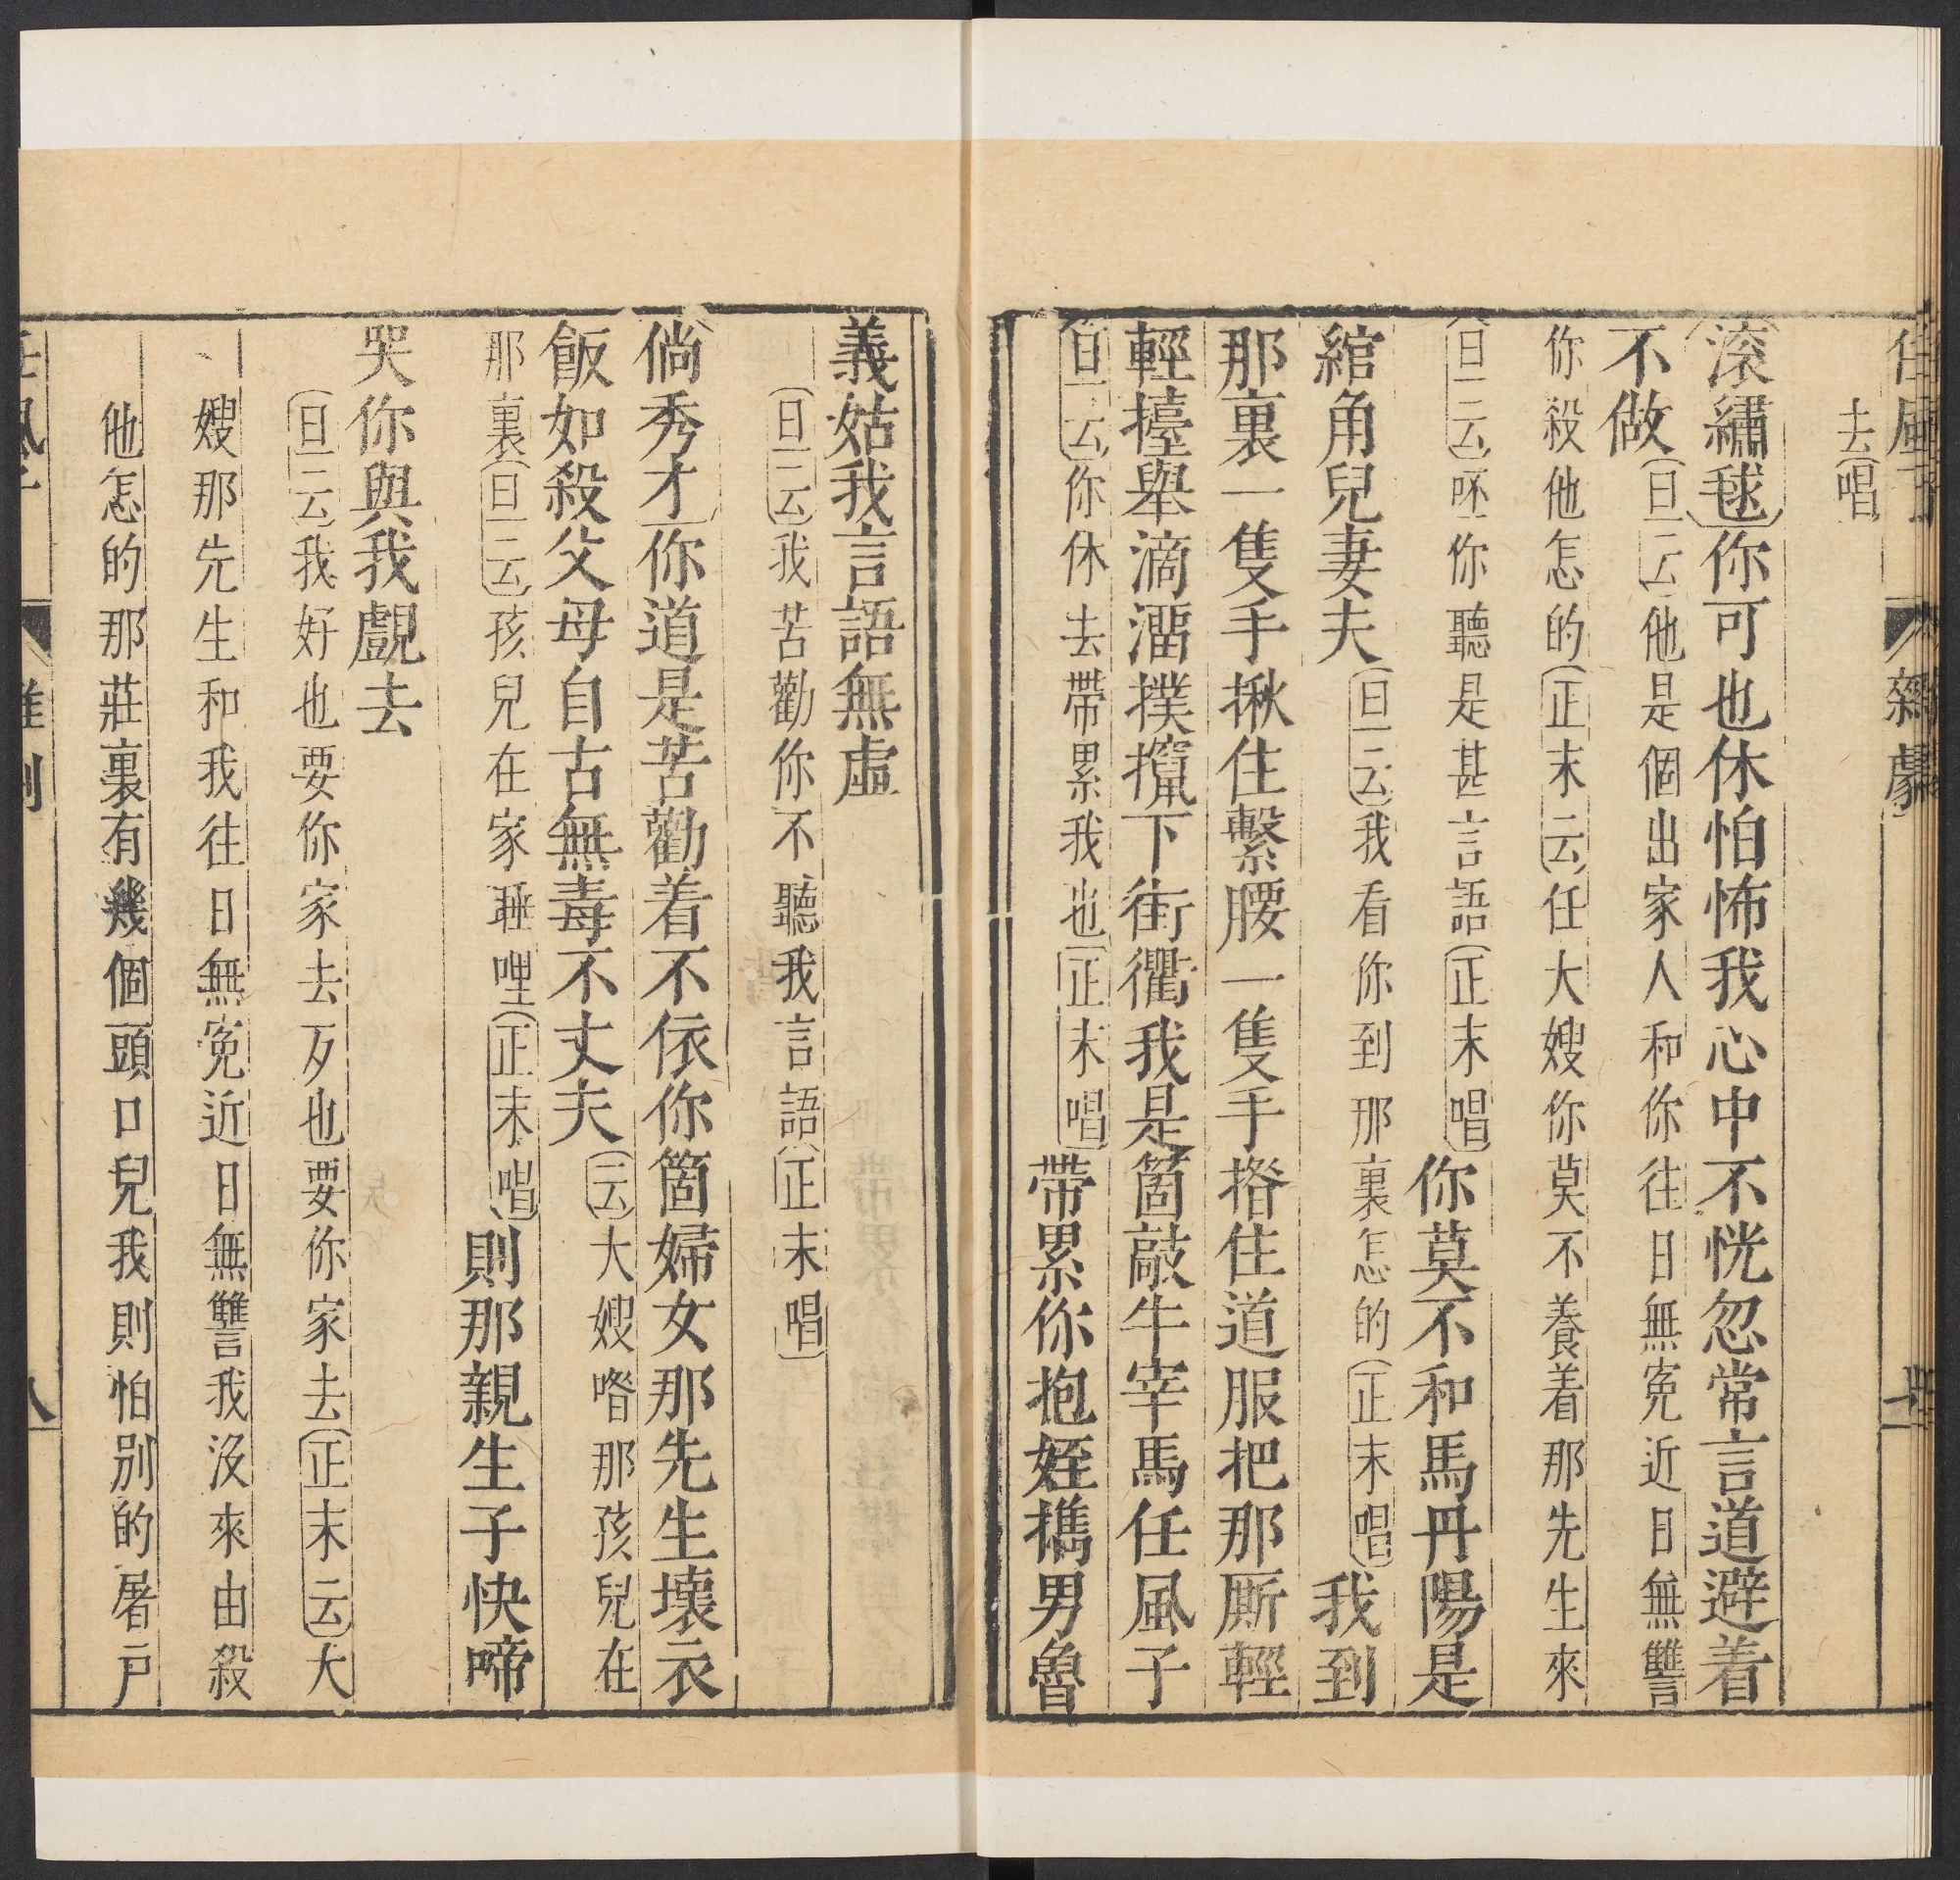 任風子 雜劇 十
去(唱)
(滚繡毬)你可也休怕怖我心中不恍忽常言道避着
不做(旦云)他是個出家人和你往日無寃近日無讐
你殺他怎的(正末云)任大嫂你莫不養着那先生來
(旦云)呸你聽是甚言語(正末唱)你莫不和馬丹陽是
綰角兒妻夫(旦云)我看你到那裏怎的(正末唱)我到
那裏一隻手揪住繫腰一隻手揝住道服把那厮輕
輕擡舉滴溜撲攛下街衢我是箇敲牛宰馬任風子
(旦云)你休去帶累我也(正末唱)帶累你抱姪擕男魯
義姑我言語無虛
(旦云)我苦勸你不聽我言語(正末唱)
(倘秀才)你道是苦勸着不依你箇婦女那先生壞衣
飯如殺父母自古無毒不丈夫(云)大嫂喒那孩兒在
那裏(旦云)孩兒在家𥄨哩(正末唱)則那親生子快啼
哭你與我覷去
(旦云)我好也要你家去歹也要你家去(正末云)大
嫂那先生和我往日無寃近日無讐我沒來由殺
他怎的那莊裏有幾個頭口兒我則怕別的屠戶
任風子 雜劇 八